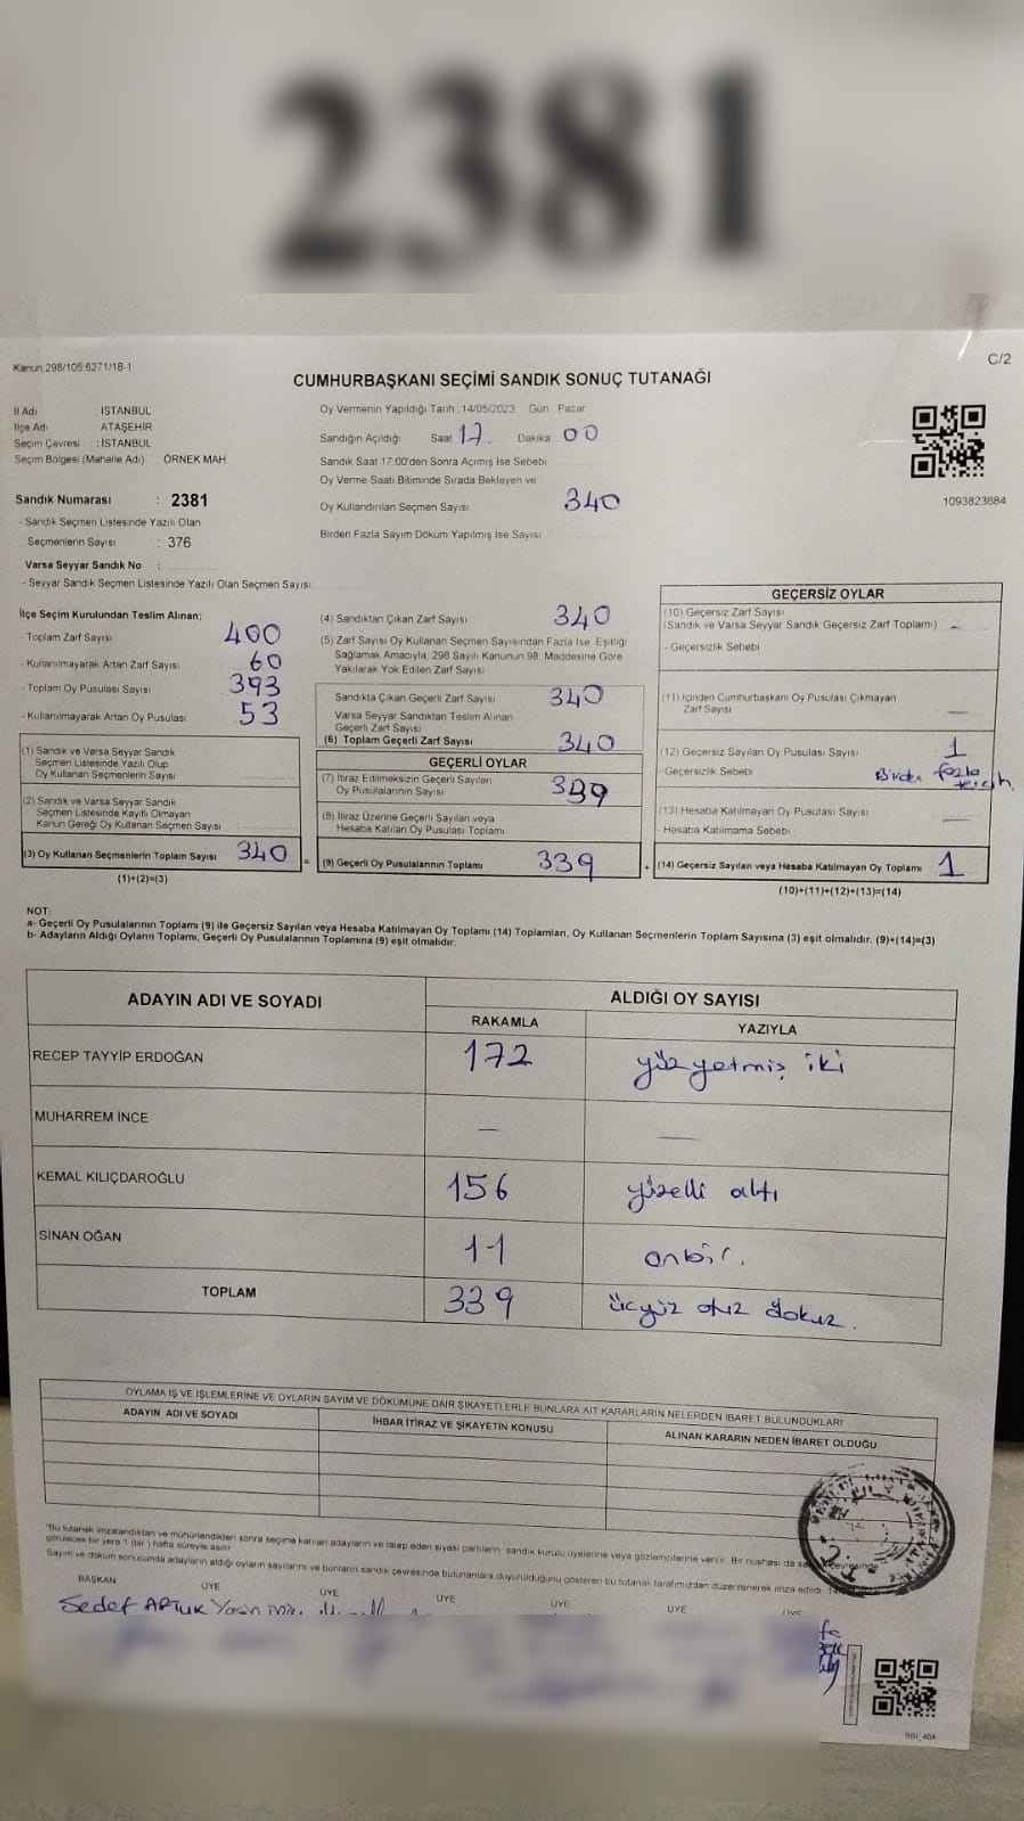 2381
Kanun 298/105 6271/18-1
C/2
CUMHURBAŞKANI SEÇİMİ SANDIK SONUÇ TUTANAĞI
İl Adı : İSTANBUL
İlçe Adı : ATAŞEHİR
Seçim Çevresi : İSTANBUL
Seçim Bölgesi (Mahalle Adı) ÖRNEK MAH
Sandık Numarası : 2381
- Sandık Seçmen Listesinde Yazılı Olan
Seçmenlerin Sayısı : 376
Varsa Seyyar Sandık No :
- Seyyar Sandık Seçmen Listesinde Yazılı Olan Seçmen Sayısı
Oy Vermenin Yapıldığı Tarih : 14/05/2023 Gün : Pazar
Sandığın Açıldığı Saat 17 Dakika 00
Sandık Saat 17:00'den Sonra Açılmış İse Sebebi
Oy Verme Saati Bitiminde Sırada Bekleyen ve
Oy Kullandırılan Seçmen Sayısı 340
Birden Fazla Sayım Döküm Yapılmış İse Sayısı
1093823884
İlçe Seçim Kurulundan Teslim Alınan;
- Toplam Zarf Sayısı 400
- Kullanılmayarak Artan Zarf Sayısı 60
- Toplam Oy Pusulası Sayısı 393
- Kullanılmayarak Artan Oy Pusulası 53
(1) Sandık ve Varsa Seyyar Sandık
Seçmen Listesinde Yazılı Olup
Oy Kullanan Seçmenlerin Sayısı
(2) Sandık ve Varsa Seyyar Sandık
Seçmen Listesinde Kayıtlı Olmayan
Kanun Gereği Oy Kullanan Seçmen Sayısı
(3) Oy Kullanan Seçmenlerin Toplam Sayısı 340 =
(1)+(2)=(3)
(4) Sandıktan Çıkan Zarf Sayısı 340
(5) Zarf Sayısı Oy Kullanan Seçmen Sayısından Fazla İse, Eşitliği
Sağlamak Amacıyla, 298 Sayılı Kanunun 98. Maddesine Göre
Yakılarak Yok Edilen Zarf Sayısı
Sandıkta Çıkan Geçerli Zarf Sayısı 340
Varsa Seyyar Sandıktan Teslim Alınan
Geçerli Zarf Sayısı
(6) Toplam Geçerli Zarf Sayısı 340
GEÇERLİ OYLAR
(7) İtiraz Edilmeksizin Geçerli Sayılan
Oy Pusulalarının Sayısı 339
(8) İtiraz Üzerine Geçerli Sayılan veya
Hesaba Katılan Oy Pusulası Toplamı
(9) Geçerli Oy Pusulalarının Toplamı 339 +
GEÇERSİZ OYLAR
(10) Geçersiz Zarf Sayısı
(Sandık ve Varsa Seyyar Sandık Geçersiz Zarf Toplamı) -
- Geçersizlik Sebebi
(11) İçinden Cumhurbaşkanı Oy Pusulası Çıkmayan
Zarf Sayısı —
(12) Geçersiz Sayılan Oy Pusulası Sayısı 1
Geçersizlik Sebebi Birden fazla
tercih.
(13) Hesaba Katılmayan Oy Pusulası Sayısı —
- Hesaba Katılmama Sebebi
(14) Geçersiz Sayılan veya Hesaba Katılmayan Oy Toplamı 1
(10)+(11)+(12)+(13)=(14)
NOT:
a- Geçerli Oy Pusulalarının Toplamı (9) ile Geçersiz Sayılan veya Hesaba Katılmayan Oy Toplamı (14) Toplamları, Oy Kullanan Seçmenlerin Toplam Sayısına (3) eşit olmalıdır. (9)+(14)=(3)
b- Adayların Aldığı Oyların Toplamı, Geçerli Oy Pusulalarının Toplamına (9) eşit olmalıdır.
ADAYIN ADI VE SOYADI ALDIĞI OY SAYISI
RAKAMLA YAZIYLA
RECEP TAYYİP ERDOĞAN 172 yüzyetmiş iki
MUHARREM İNCE — —
KEMAL KILIÇDAROĞLU 156 yüzelli altı
SİNAN OĞAN 11 onbir.
TOPLAM 339 üçyüz otuz dokuz.
OYLAMA İŞ VE İŞLEMLERİNE VE OYLARIN SAYIM VE DÖKÜMÜNE DAİR ŞİKAYETLERLE BUNLARA AİT KARARLARIN NELERDEN İBARET BULUNDUKLARI
ADAYIN ADI VE SOYADI İHBAR İTİRAZ VE ŞİKAYETİN KONUSU ALINAN KARARIN NEDEN İBARET OLDUĞU
"Bu tutanak imzalandıktan ve mühürlendikten sonra seçime katılan adayların ve talep eden siyasi partilerin sandık kurulu üyelerine veya gözlemcilerine verilir. Bir nüshası da
görülecek bir yere 1 (bir) hafta süreyle asılır.
Sayım ve döküm sonucunda adayların aldığı oyların sayılarını ve bunların sandık çevresinde bulunanlara duyurulduğunu gösteren bu tutanak tarafımızdan düzenlenerek imza edildi.
BAŞKAN ÜYE ÜYE ÜYE ÜYE ÜYE ÜYE
Sedef ARTUK